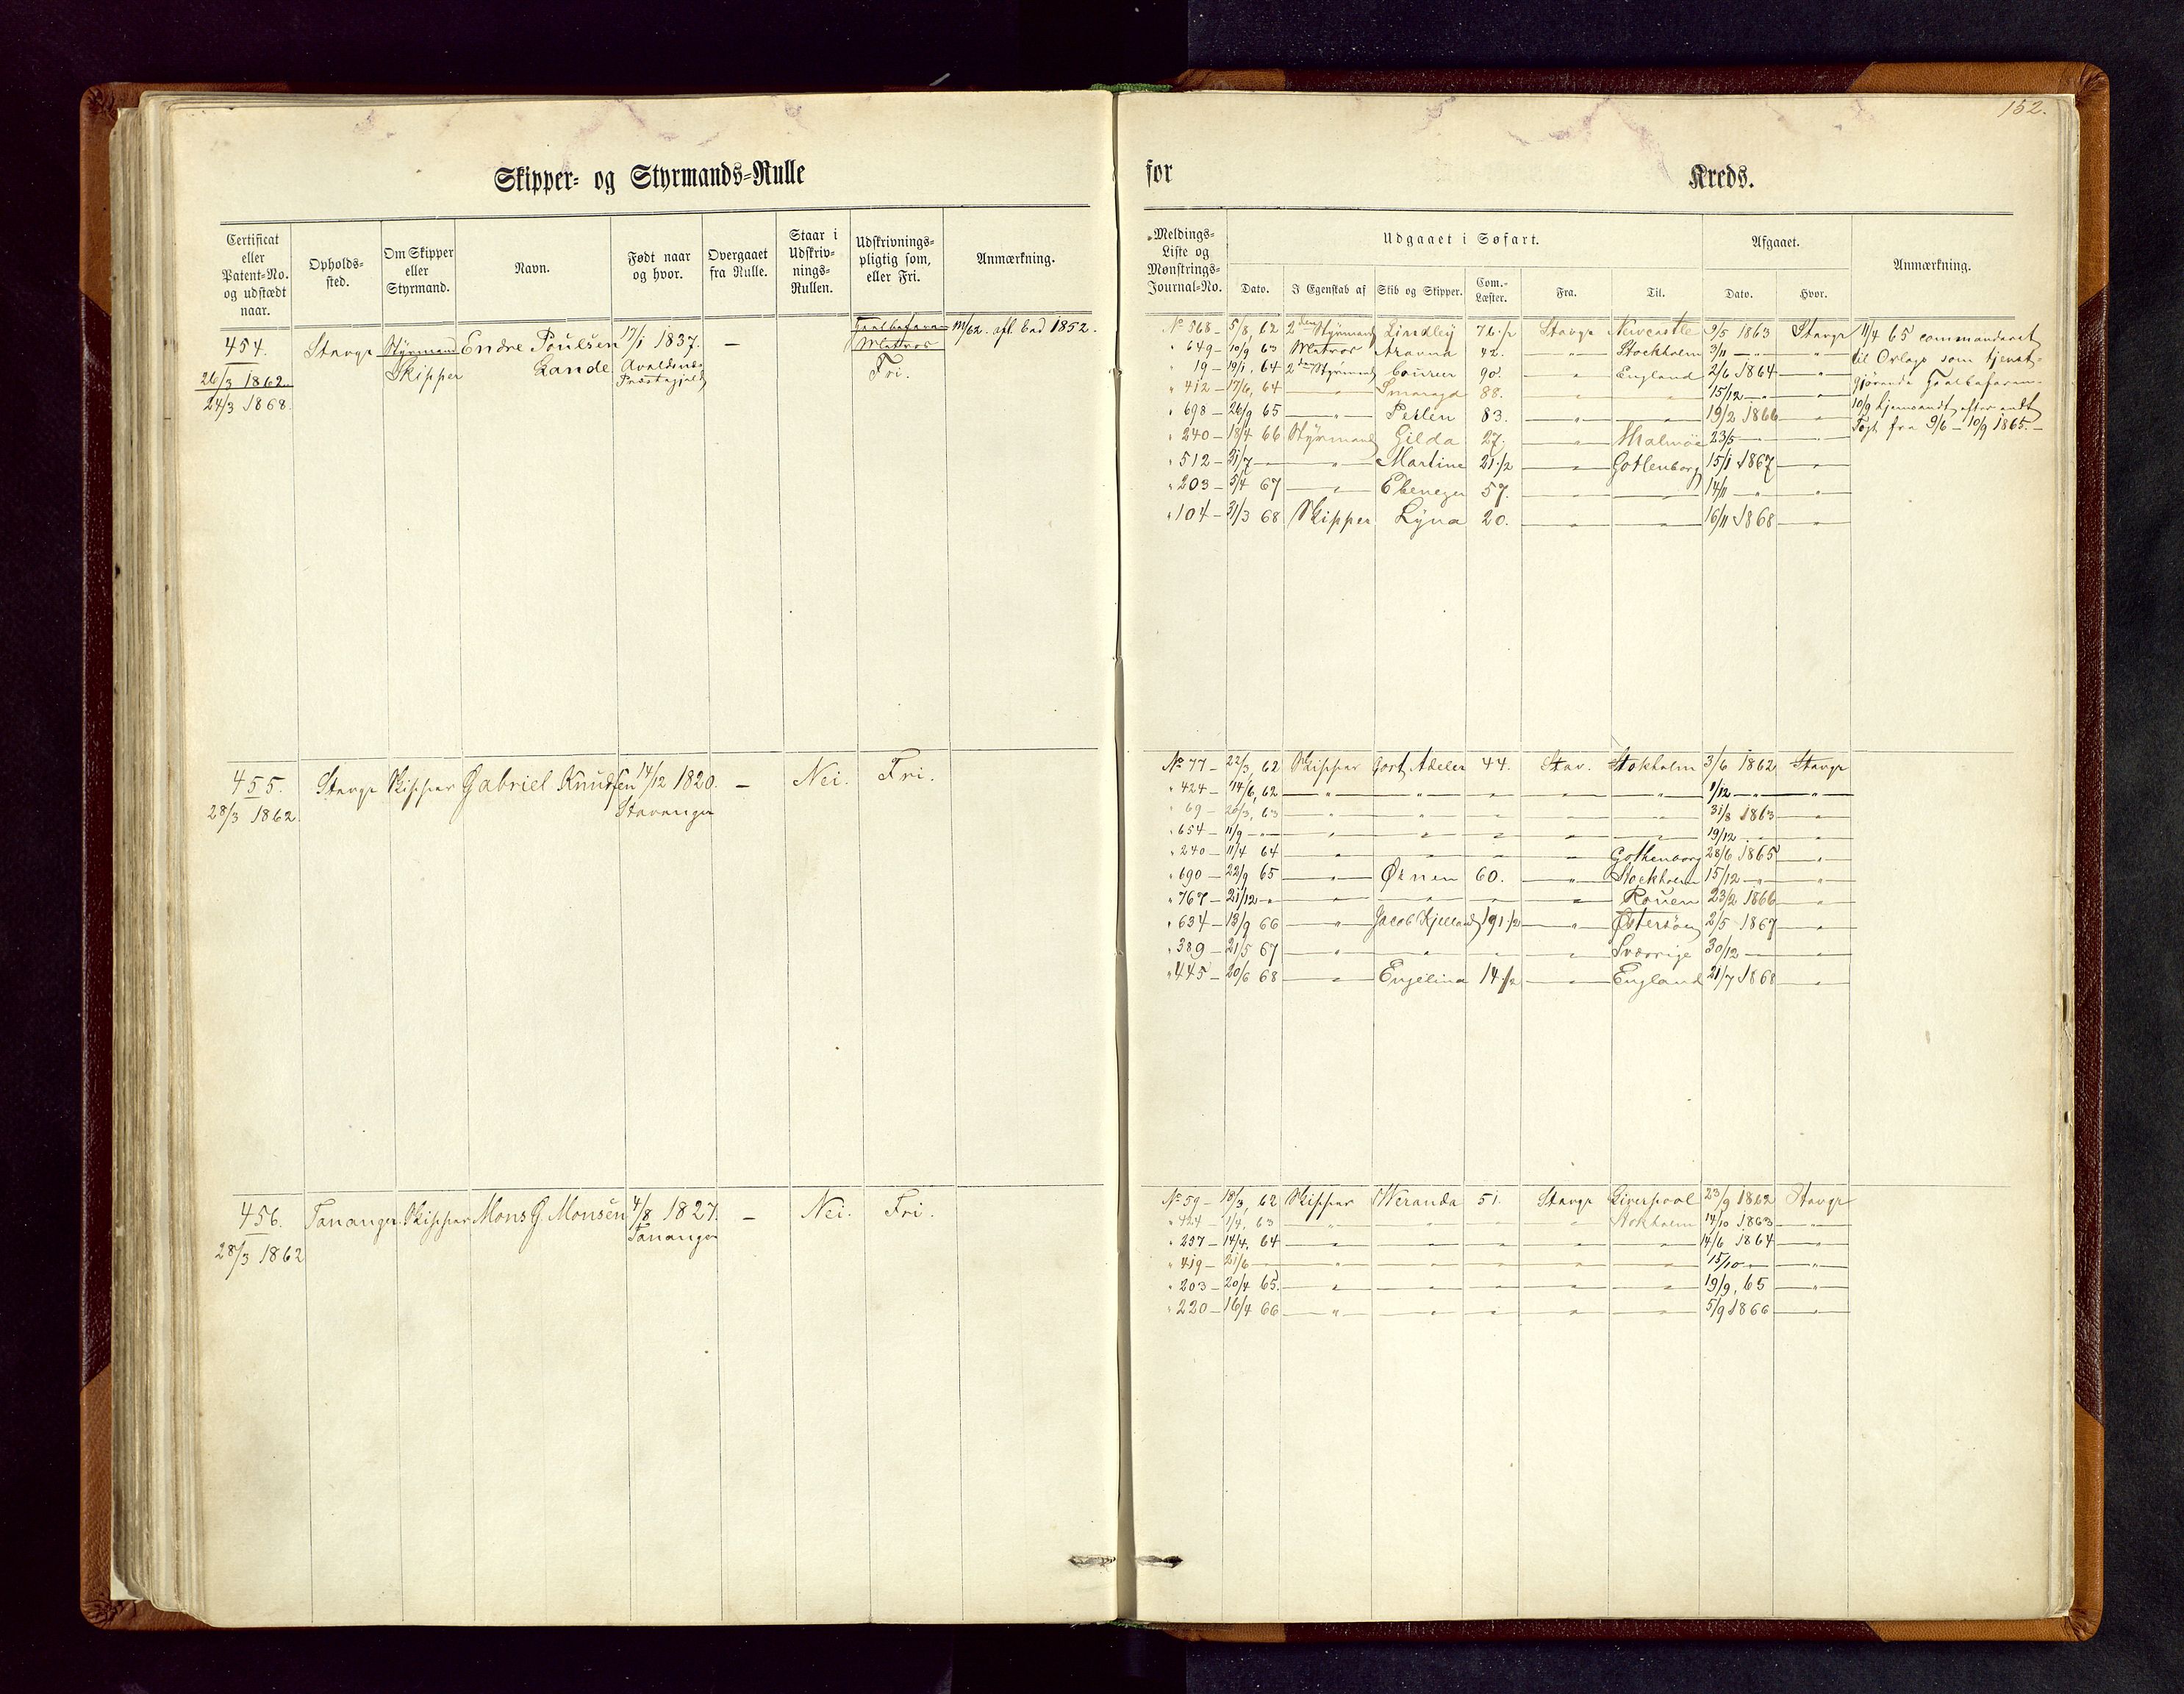 152.
Skipper- og Styrmands-Rulle
for Kreds.
Certificat eller Patent-No. og udstædt naar.
Opholds-sted.
Om Skipper eller Styrmand.
Navn.
Født naar og hvor.
Overgaaet fra Rulle.
Staar i Udskriv-nings-Rullen.
Udskrivnings-pligtig som, eller Fri.
Anmærkning.
Meldings-Liste og Mønstrings-Journal-No.
Udgaaet i Søfart.
Dato.
I Egenskab af
Skib og Skipper.
Com.-Læster.
Fra.
Til.
Afgaaet.
Dato.
Hvor.
Anmærkning.
454. Stavgr Styrmand Endre Poulsen 17/1 1837. —
Skipper Lande Avaldsnes Præstegjeld Matros
26/3 1862. Fri.
24/3 1868.
afl. Ed 1852.
No 568 — 5/8, 62 2den Styrmand Lindley 76 1/2 Stavgr Newcastle 9/5 1863 Stavgr
" 649 — 10/9 63 Matros 42. — " — Stockholm 3/11 — " — "
" 19 — 19/1, 64 2den Styrmand 90. " England 2/6 1864 — " —
" 412 — 17/6, 64 — " — Smaragd 88. " " 15/12 — " — "
" 698 — 26/9 65 — " — Perlen 83. " — " — 19/2 1866 "
" 240 — 18/4 66 Styrmand Gilda 27. " Malmöe 23/5 — " —
" 512 — 31/7 — " — Martine 21 1/2 — " — Gottenborg 15/1 1867 — " —
" 203 — 5/4 67 — " — Ebenezer 57. — " — 14/11 — " — "
" 104 — 31/3 68 Skipper Lyna 20. — " — " — 16/11 1868 — " —
11/4 65 commanderet
til Orlogs som tjenst-
gjørende
10/9 hjemsendt efter endt
Togt fra 9/6 – 10/9 1865. —
455. Stavgr Skipper Gabriel Knudsen 14/12 1820. — Nei. Fri.
28/3 1862. Stavanger
No 77 — 22/3, 62 Skipper Cort Adeler 44. Stav. Stokholm 3/6 1862 Stavgr
" 424 — 14/6, 62 — " — " — " — " — " — 1/12 — " — "
" 69 — 26/3, 63 — " — " — " — " — " — 31/8 1863 — " —
" 654 — 11/9 — " — " — " — " — " — " — 19/12 — " — "
" 240 — 11/4 64 — " — " — " — " — Gothenborg 28/6 1865 — " —
" 690 — 22/9 65 — " — Ørnen 60. — " — Stockholm 15/12 — " — "
" 767 — 21/12 — " — " — " — " — " — Rouen 23/2 1866 — " —
" 634 — 13/9 66 — " — Jacob Kjelland 191 1/2 — " — Østersöen 2/5 1867 — " —
" 389 — 21/5 67 — " — " — " — " — Sværrige 30/12 — " — "
" 445 — 20/6 68 — " — Engelina 14 1/2 — " — England 21/7 1868 — " —
456. Tananger. Skipper Mons G. Monsen 4/8 1827. — Nei. Fri.
28/3 1862 Tananger
No 59 — 18/3, 62 Skipper Weranda 51. Stavgr Liverpool 23/9 1862 Stavgr
" 424 — 1/4, 63 — " — " — " — " — Stokholm 14/10 1863 — " —
" 237 — 14/4, 64 — " — " — " — " — " — 14/6 1864 — " —
" 419 — 21/6 — " — " — " — " — " — 15/10 — " — "
" 203 — 20/4 65. — " — " — " — " — " — 19/9, 65 — " —
" 220 — 16/4 66 — " — " — " — " — " — 5/9 1866 — " —